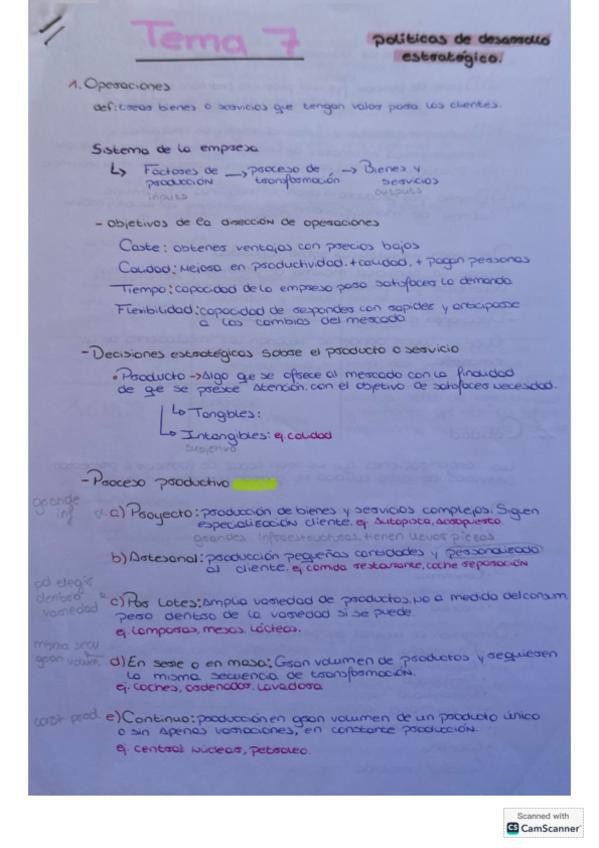 Tema 7
políticas de desarrollo
estratégico.
1. Operaciones
def: crear bienes o servicios que tengan valor para los clientes.
Sistema de la empresa
↳ Factores de → proceso de → Bienes y
producción transformación servicios
inputs outputs
- Objetivos de la dirección de operaciones
Coste: obtener ventajas con precios bajos
Calidad: Mejora en productividad. + calidad, + pagan personas
Tiempo: capacidad de la empresa para satisfacer la demanda
Flexibilidad: capacidad de responder con rapidez y anticiparse
a los cambios del mercado
- Decisiones estratégicas sobre el producto o servicio
• Producto → Algo que se ofrece al mercado con la finalidad
de que se preste atención, con el objetivo de satisfacer necesidad.
↳ Tangibles:
↳ Intangibles: ej calidad
subjetivo
- Proceso productivo
grande
inf
a) Proyecto: producción de bienes y servicios complejos. Siguen
especialización cliente. ej. autopista, aeropuerto
grandes infraestructuras, tienen varias piezas
b) Artesanal: producción pequeñas cantidades y personalizado
al cliente. ej comida restaurante, coche reparación
pd elegir
dentro
variedad
c) Por Lotes: Amplia variedad de productos, no a medida del consum.
pero dentro de la variedad si se puede.
ej. lámparas, mesas. Lácteos.
misma secu
gran volum.
d) En serie o en masa: Gran volumen de productos y requieren
la misma secuencia de transformación.
ej. coches, ordenador, lavadora
const prod.
e) Continuo: producción en gran volumen de un producto único
o sin apenas variaciones, en constante producción.
ej. central nuclear, petroleo.
Scanned with
CS CamScanner